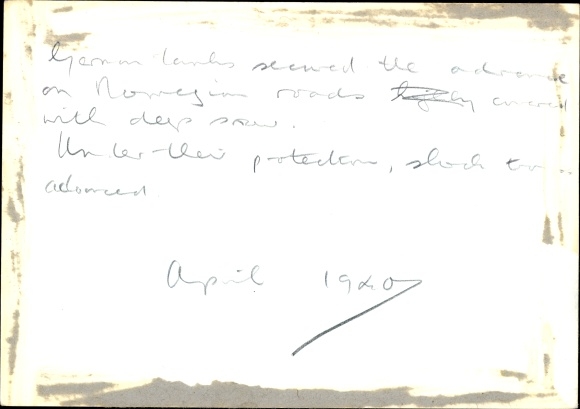 German tanks secured the advance
on Norwegian roads covered
with deep snow.
Under their protection, shock
advanced
April 1940